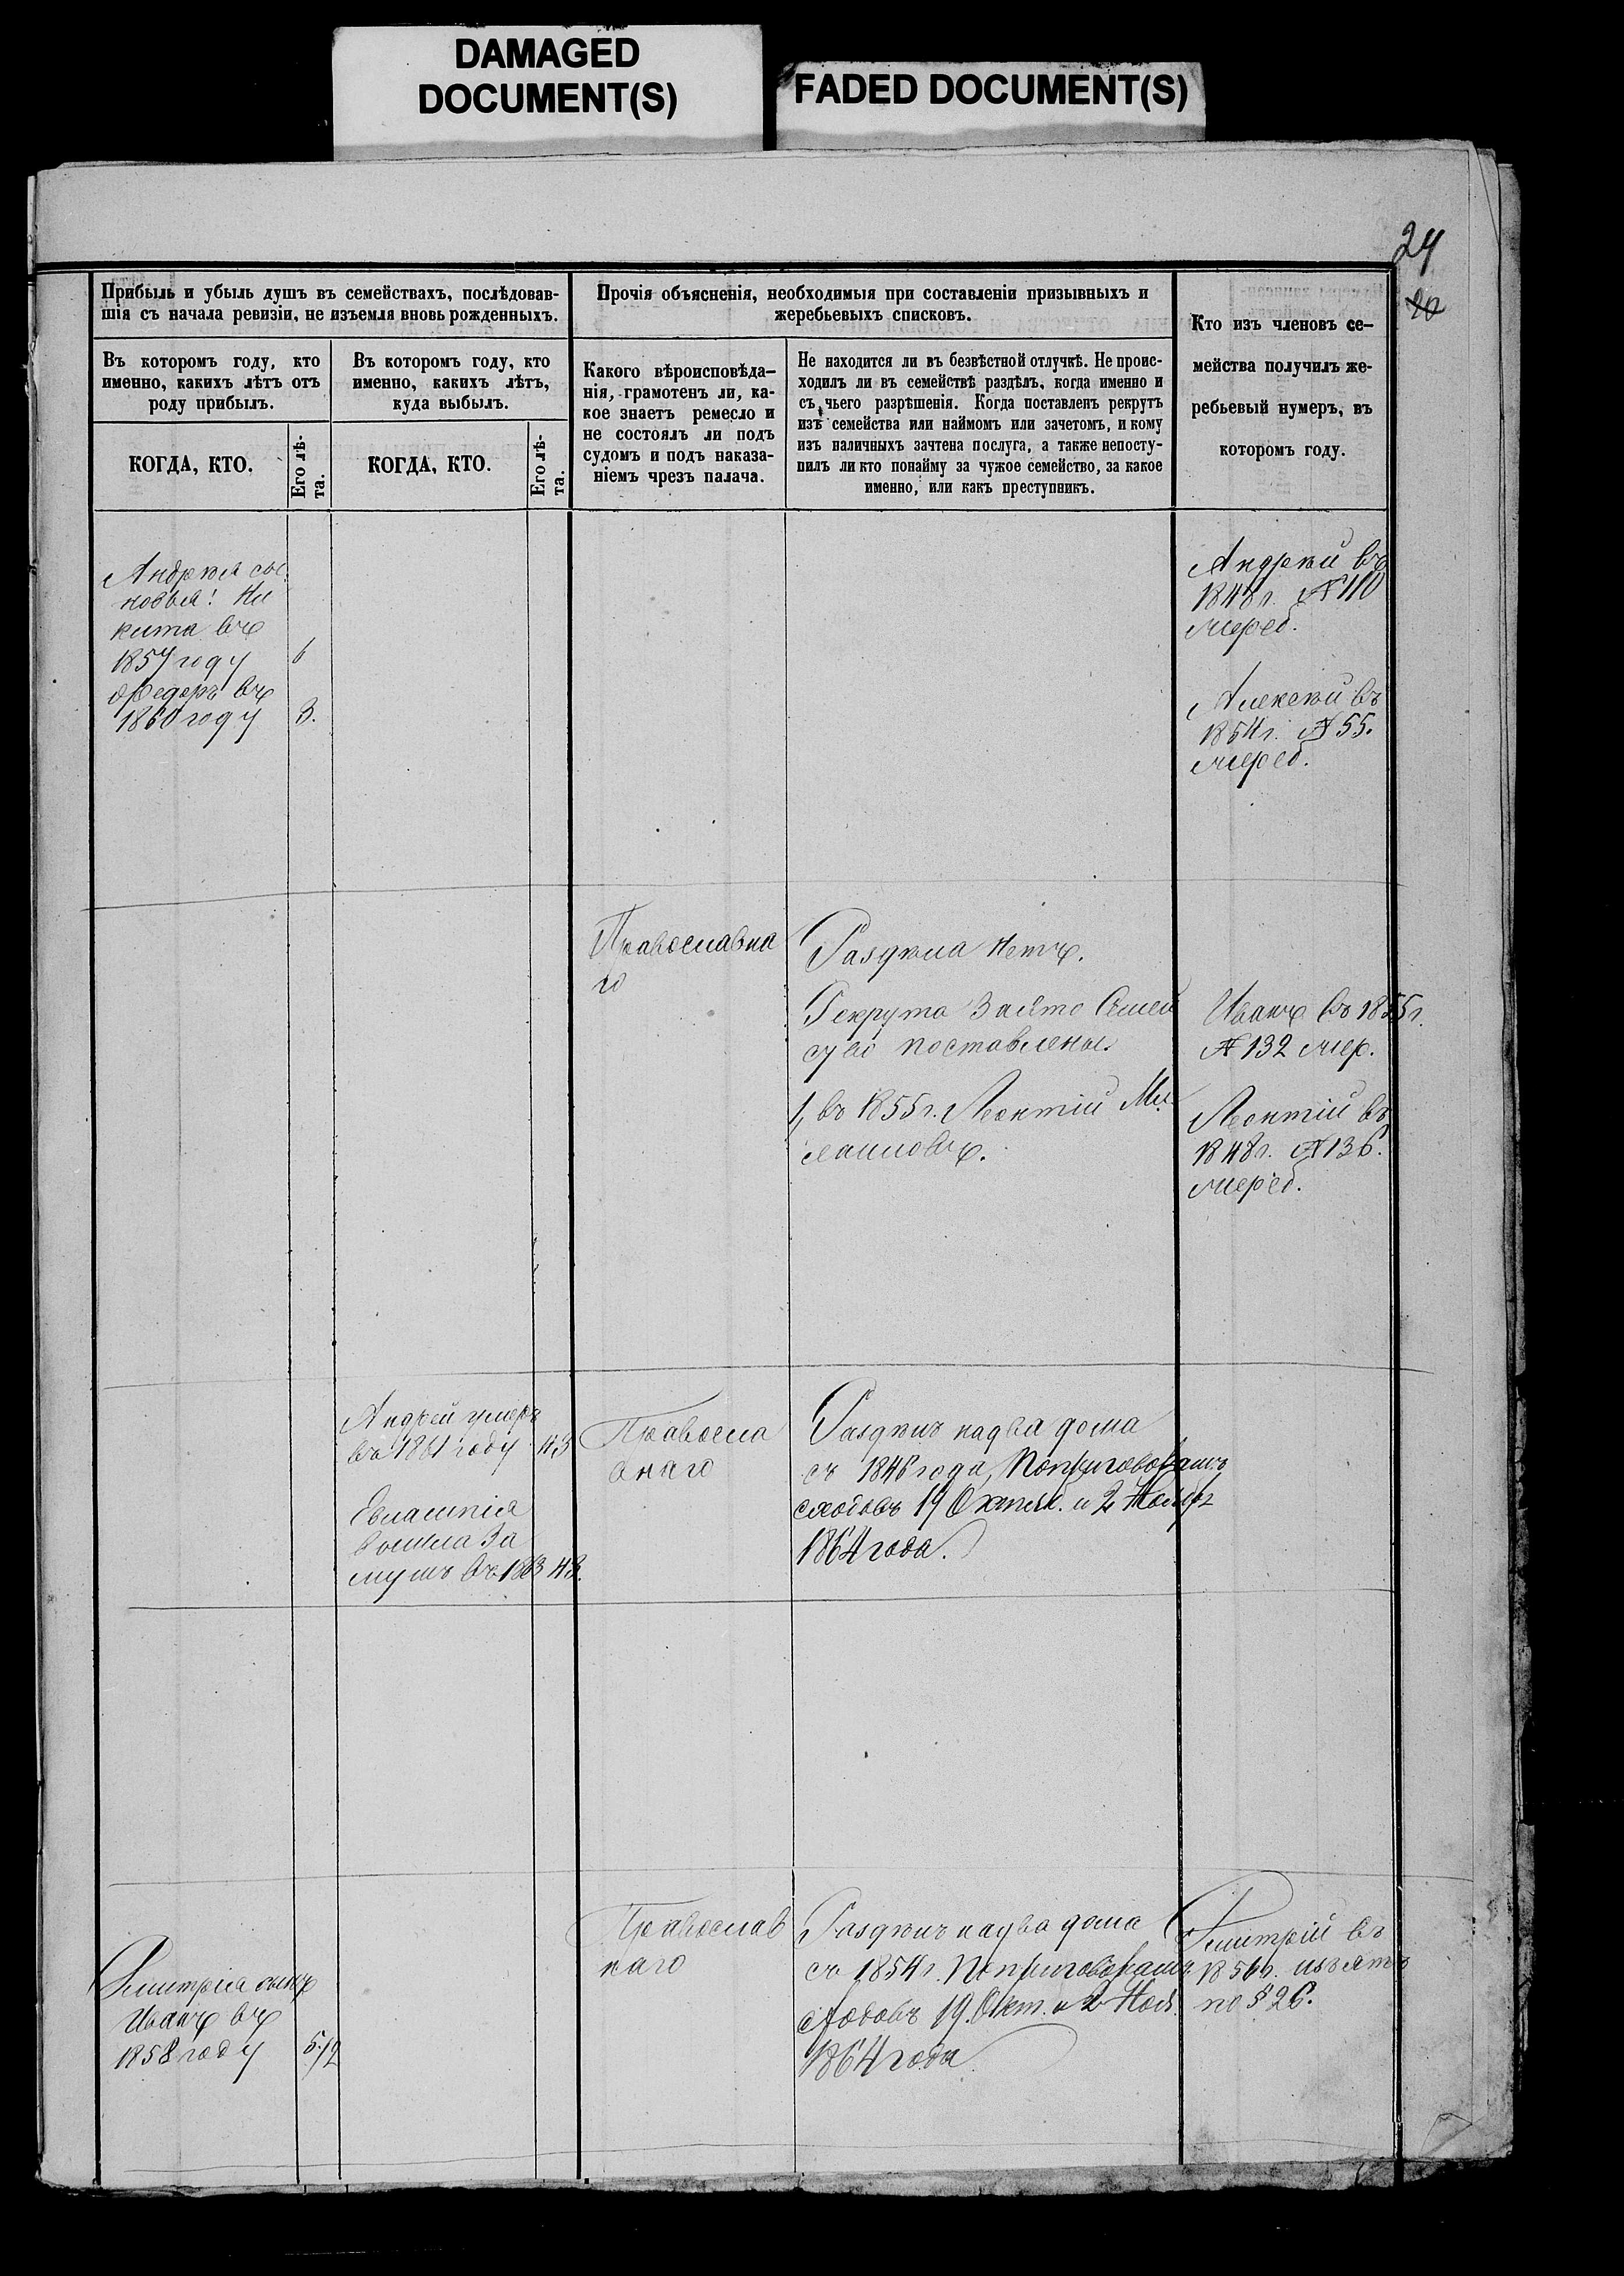 DAMAGED
DOCUMENT(S)
FADED DOCUMENT(S)
24
20
Прибыль и убыль душъ въ семействахъ, послѣдовав-
шія съ начала ревизіи, не изъемля вновь рожденныхъ.
Прочія объясненія, необходимыя при составленіи призывныхъ и
жеребьевыхъ списковъ.
Кто изъ членовъ се-
мейства получилъ же-
ребьевый нумеръ, въ
которомъ году.
Въ которомъ году, кто
именно, какихъ лѣтъ отъ
роду прибылъ.
Въ которомъ году, кто
именно, какихъ лѣтъ,
куда выбылъ.
Какого вѣроисповѣда-
нія, грамотенъ ли, ка-
кое знаетъ ремесло и
не состоялъ ли подъ
судомъ и подъ наказа-
ніемъ чрезъ палача.
Не находится ли въ безвѣстной отлучкѣ. Не проис-
ходилъ ли въ семействѣ раздѣлъ, когда именно и
съ чьего разрѣшенія. Когда поставленъ рекрутъ
изъ семейства или наймомъ или зачетомъ, и кому
изъ наличныхъ зачтена послуга, а также непосту-
пилъ ли кто понайму за чужое семейство, за какое
именно, или какъ преступникъ.
КОГДА, КТО.
Его лѣ-
та.
КОГДА, КТО.
Его лѣ-
та.
Андрея сы-
новья: Ни
кита въ
1857 году 6
Федоръ въ
1860 году 3.
Андрей въ
1848 г. № 110
жереб.
Алексѣй въ
1854 г. № 55.
жереб.
Православна
го
Раздѣла нетъ.
Рекрута За Семей
поставлены
1, въ 1855 г. Леонтій Ми-
хаиловъ.
Иванъ въ 1855 г.
№ 132 жер.
Леонтій въ
1848 г. № 136.
жереб.
Андрей умеръ
въ 1861 году 43
Евлампія
вышла За
мужъ въ 1863 43.
Правосла
внаго
Раздѣлъ на два дома
съ 1846 года, По приговорамъ
сходовъ 19 Октяб. и 2 Ноябр
1864 года.
Дмитрія сынъ
Иванъ въ
1858 году 5 1/2
Православ
наго
Раздѣлъ на два дома
съ 1854 г. По приговорамъ
сходовъ 19. Окт. и 2 Нояб.
1864 года
Дмитрій въ
1856 г. изъятъ
по § 26.